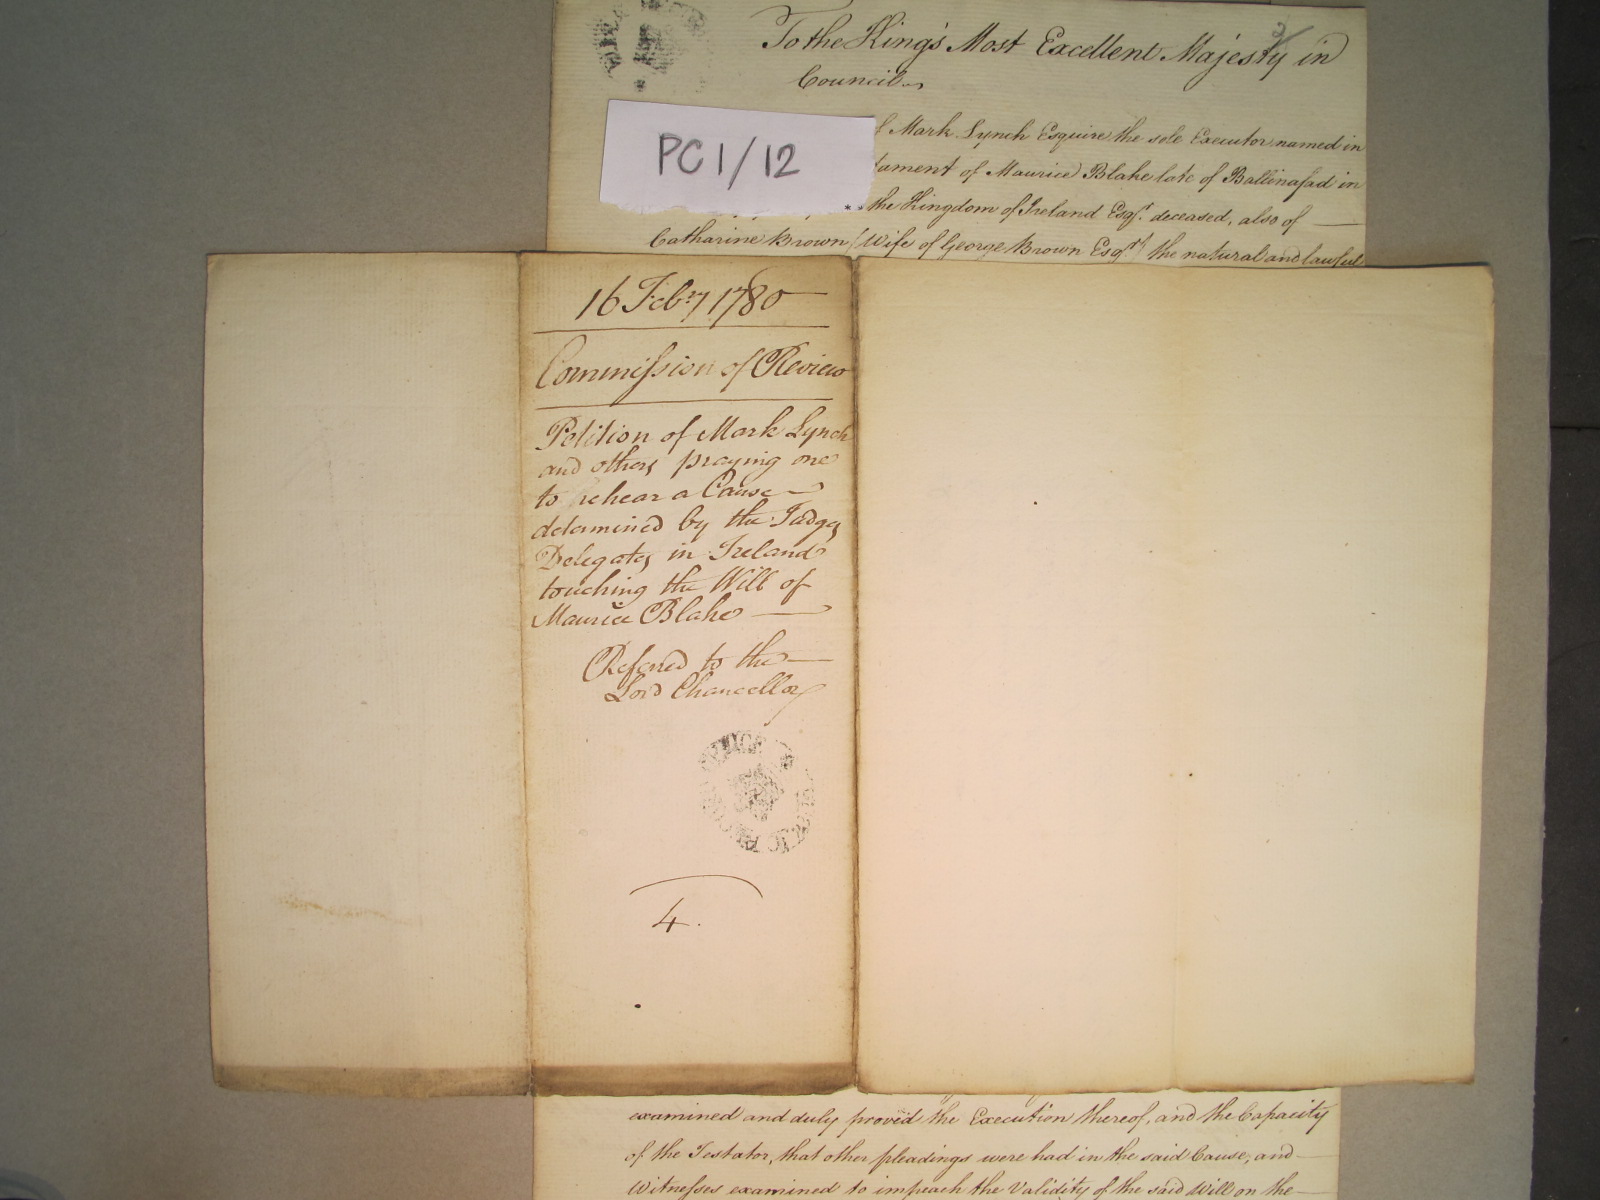 To the King's Most Excellent Majesty in
Council
PC1/12
f Mark Lynch Esquire the sole Executor named in
tament of Maurice Blake late of Ballinafad in
the Kingdom of Ireland Esqr. deceased, also of
Catharine Brown Wife of George Brown Esqr. the natural and lawful
16 Febry 1780
Commission of Review
Petition of Mark Lynch
and others praying one
to rehear a Cause
determined by the Judges
Delegates in Ireland
touching the Will of
Maurice Blake
Referred to the
Lord Chancellor
4.
examined and duly proved the Execution thereof, and the Capacity
of the Testator, that other pleadings were had in the said Cause, and
Witnesses examined to impeach the Validity of the said Will on the